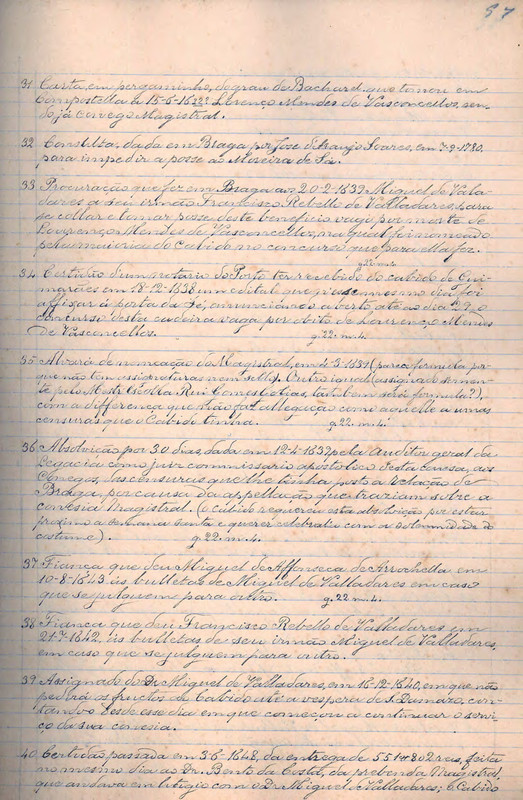 57
31 Carta, em pergaminho, do grau de Bacharel que tomou em
Compostella a 15-6-1632 Lourenço Mendes de Vasconcellos, sen-
do, já conego Magistral.
32 Consulta, dada em Braga por José d'Araujo Soares, em 7-9-1780,
para impedir a posse ao Moreira de Sá.
33 Procuração que fez em Braga aos 20-2-1839 Miguel de Vala-
dares a seu irmão Francisco Rebello de Valladares, para
se collar e tomar posse deste beneficio vago por morte de
Lourenço Mendes de Vasconcellos, na qual foi nomeado
pela maioria do Cabido no concurso que para ella fez.
g. 22 m. 4.
34 Certidão d'um notario do Porto ter recebido do cabido de Gui-
marães em 18-12-1838 um edital que n'esse mesmo dia foi
affixar á porta da Sé, annunciando aberto, até ao dia 29, o
concurso desta cadeira vaga por obito de Lourenço Mendes
de Vasconcellos. g. 22. m. 4.
35 Alvará de nomeação do Magistral, em 4-3-1839 (parece formula por-
que não tem assignaturas nem sello). Outro igual (assignado sómen-
te pelo Mestre Escolla Rui Gomes Golias, tambem será formula?),
com a differença que não faz allegação como aquelle a umas
censuras que o Cabido tinha. g. 22. m. 4.
36 Absolvição por 30 dias, dada em 12-4-1839 pela Auditor geral da
Legacia como juiz commissario apostolico desta causa, aos
Conegos, das censuras que lhe tinha posto a Relação de
Braga, por causa da appellação que traziam sobre a
conesia Magistral. (O cabido requereu esta absolvição por estar
proximo a semana santa e querer celebral-a com a solemnidade do
costume). g. 22. m. 4.
37 Fiança que deu Miguel de Affonseca de Arrochella em
10-8-1843 ás bulletas de Miguel de Valladares em caso
que se julguem para outro. g. 22 m. 4.
38 Fiança que deu Francisco Rebello de Valladares em
21-7-1842 ás bulletas de seu irmão Miguel de Valladares,
em caso que se julguem para outro.
39 Assignado do Dr. Miguel de Valladares, em 16-12-1840, em que não
pedirá os fructos ao Cabido até a vespera de S. Damazo, con-
tando desde esse dia em que começou a continuar o servi-
ço da sua conesia.
40 Certidão passada em 3-6-1648, da entrega de 551$802 reis, feita
no mesmo dia ao Dr. Bento da Costa, da prebenda Magistral,
que andava em litigio com o Dr. Miguel de Valladares; o Cabido